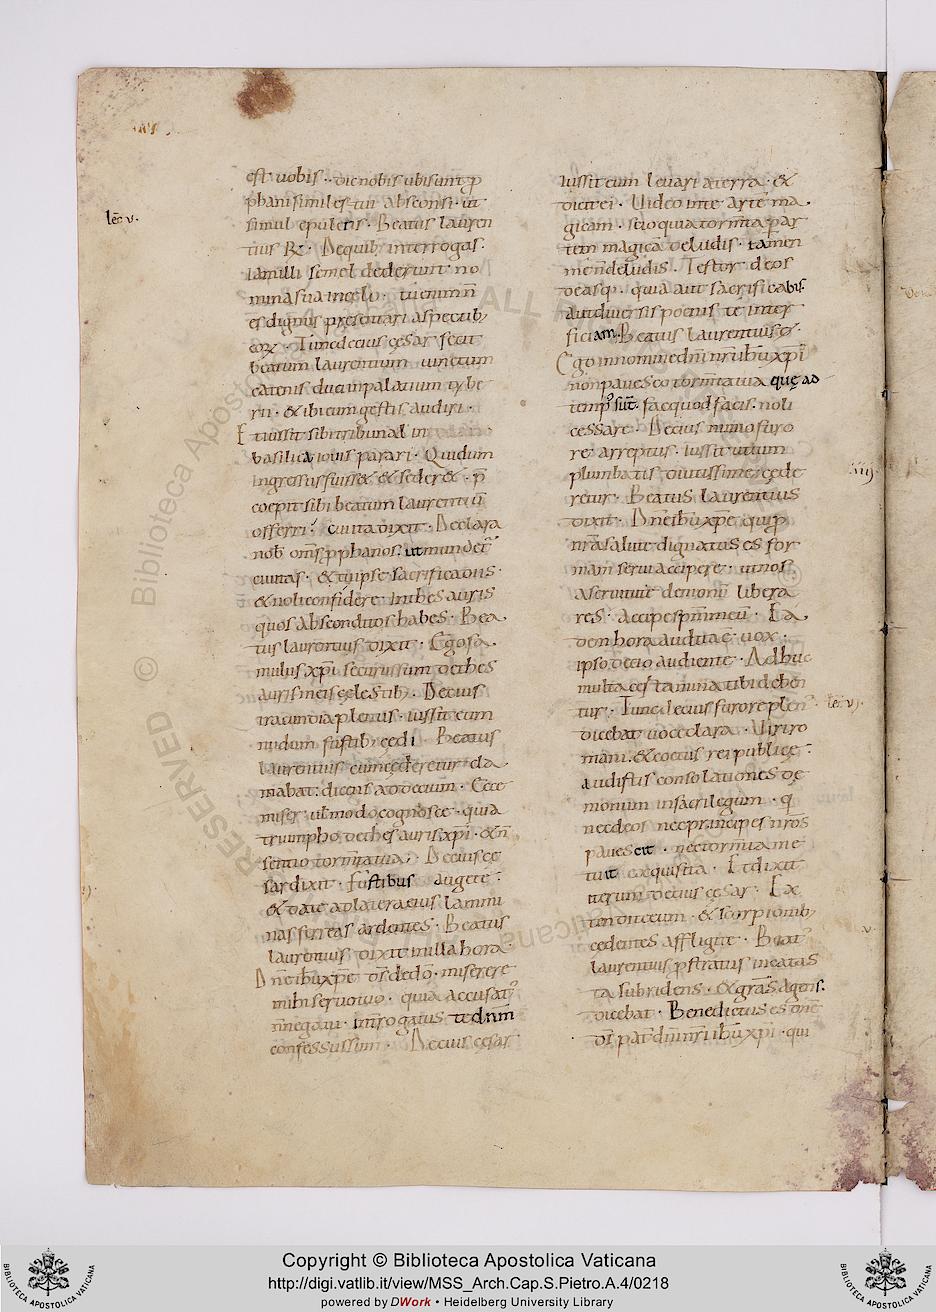 lec̄ v.
est uobis · dic nobis ubi sunt p
phani similes tui absconsi · ut
simul epulens · Beatus lauren
tius R · De quib; interrogas ·
iam illi semel dederunt no
mina sua in celo · tu enim n̄
es dignus presentari aspectib;
eoꝝ · Tunc decius cęsar fecit
beatum laurentium uinctum
catenis duci in palatium tybe
rii · & ibi eum gestis audiri ·
Et iussit sibi tribunal in
basilica iouis parari · Qui dum
ingressus fuiss& & seder& · p̄
coepit sibi beatum laurentiū
offerri · cui ita dixit · Declara
nob̄ om̄s pphanos · ut mundet̄
ciuitas · & tu ipse sacrifica diis ·
& noli confidere in thesauris
quos absconditos habes · Bea
tus laurentius dixit · Ego fa
mulus xp̄i securus sum de thes
auris meis cęlestib; Decius
iracundia plenus · iussit eum
nudum fustib; cędi · Beatus
laurentius cum cęderetur cla
mabat : dicens ad decium · Ecce
miser · uł modo cognosce · quia
triumpho de thesauris xp̄i · & n̄
sentio tormta tua · Decius cę
sar dixit · Fustibus augete ·
& date ad latera eius lammi
nas ferreas ardentes · Beatus
laurentius dixit in illa hora ·
Dn̄e ihū xpe · ds̄ de dō · miserere
mihi seruo tuo · quia accusat᾽
n̄ negaui · intrrogatus te dnm̄
confessus sum · Decius cęsar
iussit eum leuari a terra · &
dicit ei · Uideo in te arte ma
gicam · scio quia tormta par
tem magicā deludis · tamen
me n̄ deludis · Testor deos
deasq · quia aut sacrificabis ·
aut diuersis poenis te inter
ficiam · Beatus laurentius R ·
Ego in nomine dn̄i nr̄i ihū xpi
non pauesco tormta tua quę ad
temp᾽ sūt · fac quod facis · noli
cessare · Decius nimio furo
re arreptus · iussit ut cum
plumbatis diutissime cęde
retur · Beatus laurentius
dixit · Dn̄e ihū xpe qui p
nr̄a salute dignatus es for
mam serui accipere · ut nos
a seruitute demonū libera
res · accipe spm̄ meū · Ea
dem hora audita ē uox ·
ipso decio audiente · Adhuc
multa certamina tibi deben
tur · Tunc decius furore plen᾽
lec̄ vi.
dicebat uoce clara · Uiri ro
mani · & coetus rei publicę ·
audistis consolationes dę
monum in sacrilegum · q
nec deos nec principes nr̄os
pauescit · nec tormta me
tuit exquisita · Et dixit
iterum decius cęsar · Ex
tendite eum · & scorpionib;
cędentes affligite · Beat᾽
laurentius pstratus in catas
ta subridens · & grās agens ·
dicebat · Benedictus es dn̄e
ds̄ pat̄ dn̄i nr̄i ihū xpi · qui
Copyright © Biblioteca Apostolica Vaticana
http://digi.vatlib.it/view/MSS_Arch.Cap.S.Pietro.A.4/0218
powered by DWork • Heidelberg University Library